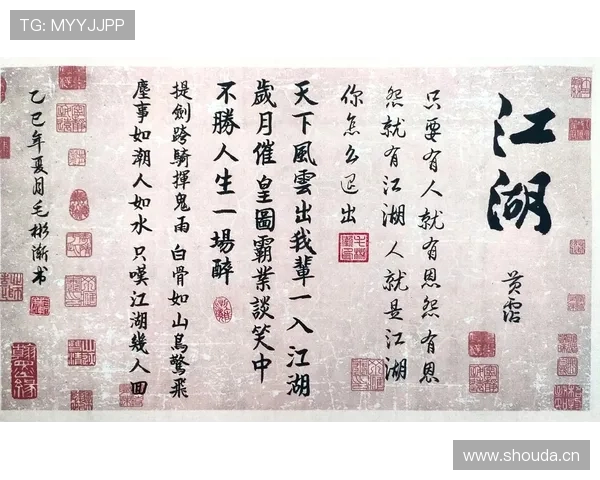 TG: MYYJJPP
江湖
黄霑
只要有人就有恩怨有恩
怨就有江湖人就是江湖
你怎么退出
天下風雲出我輩一入江湖
歲月催皇圖霸業談笑中
不勝人生一場醉
提劍跨騎揮鬼雨白骨如山鳥驚飛
塵事如潮人如水只嘆江湖幾人回
乙巳年夏月毛彬漸书
翰墨缘
www.shouda.cn